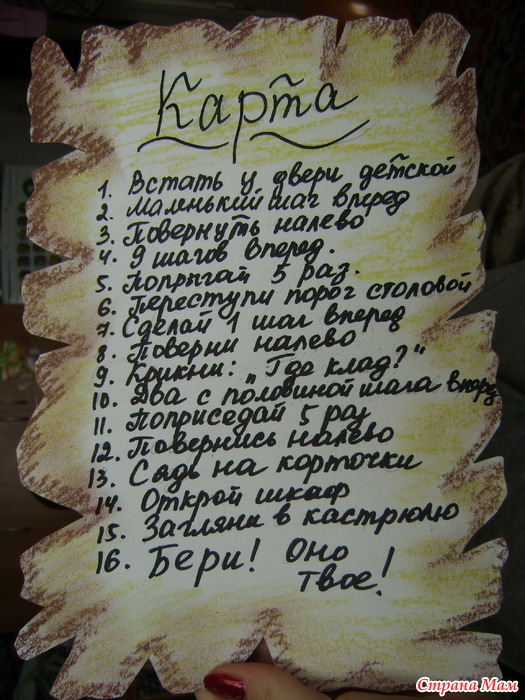 Карта
1. Встать у двери детской
2. Маленький шаг вперед
3. Повернуть налево
4. 9 шагов вперед.
5. Попрыгай 5 раз.
6. Переступи порог столовой
7. Сделай 1 шаг вперед
8. Поверни налево
9. Крикни: "Где клад?"
10. Два с половиной шага вперед
11. Поприседай 5 раз
12. Повернись налево
13. Сядь на корточки
14. Открой шкаф
15. Загляни в кастрюлю
16. Бери! Оно
твое!
Страна Мам